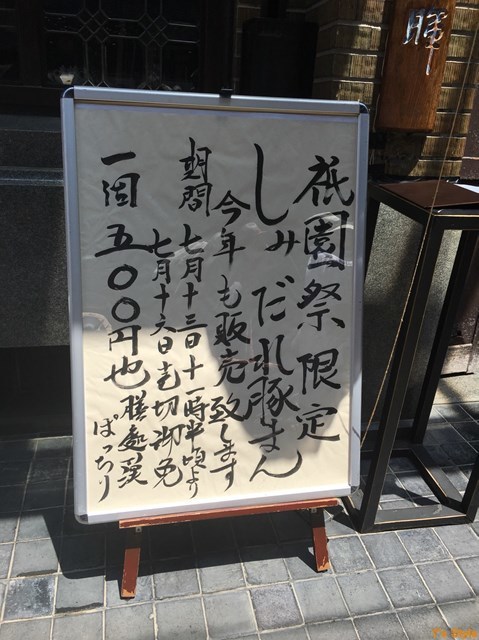 祇園祭限定
しみだれ豚まん
今年も販売致します
期間 七月十三日十一時半頃より
七月十六日売切御免
一個 五〇〇円也
膳處漢
ぱっちり